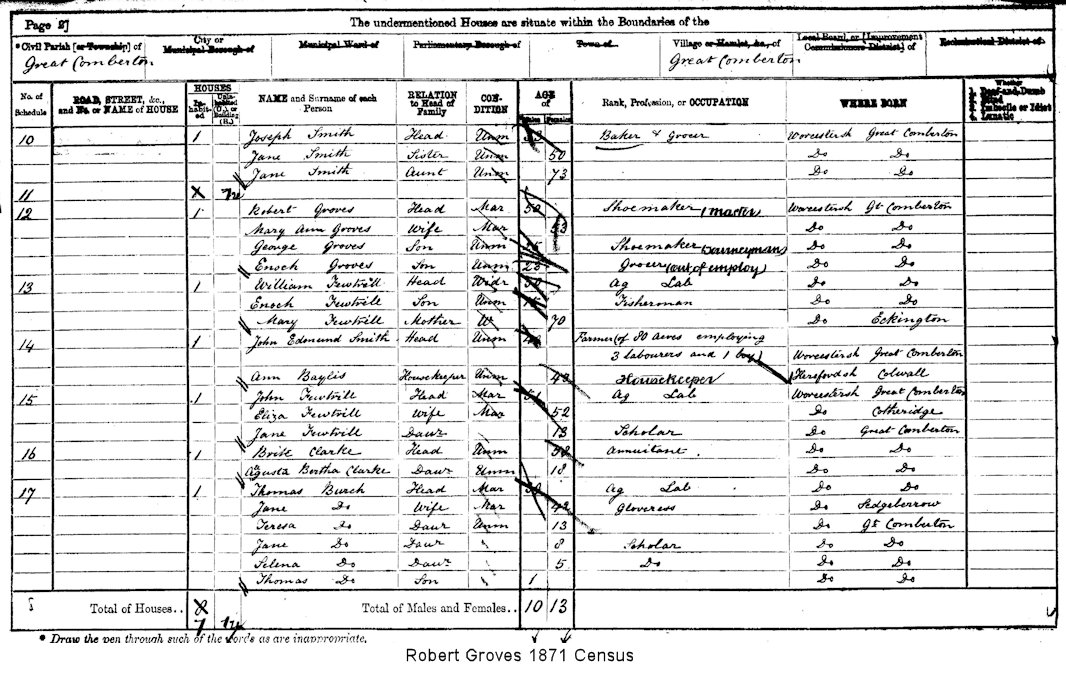 Page 2]
The undermentioned Houses are situate within the Boundaries of the
*Civil Parish [or Township] of
Great Comberton
City or Municipal Borough of
Municipal Ward of
Parliamentary Borough of
Town of
Village or Hamlet, &c., of
Great Comberton
Local Board, or [Improvement Commissioners District] of
Ecclesiastical District of
No. of Schedule
ROAD, STREET, &c., and No. or NAME of HOUSE
HOUSES
In-habit-ed
Unin-habited (U.), or Building (B.)
NAME and Surname of each Person
RELATION to Head of Family
CON-DITION
AGE of
Males
Females
Rank, Profession, or OCCUPATION
WHERE BORN
Whether
1. Deaf-and-Dumb
2. Blind
3. Imbecile or Idiot
4. Lunatic
10 1 Joseph Smith Head Unm Baker & Grocer Worcestersh Great Comberton
Jane Smith Sister Unm 50 Do Do
Jane Smith Aunt Unm 73 Do Do
11
12 1 Robert Groves Head Mar 50 Shoemaker (master) Worcestersh Gt Comberton
Mary Ann Groves Wife Mar 53 Do Do
George Groves Son Unm Shoemaker (Journeyman) Do Do
Enoch Groves Son Unm 23 Grocer (out of employ) Do Do
13 1 William Fewtrill Head Widr Ag Lab Do Do
Enoch Fewtrill Son Unm Fisherman Do Do
Mary Fewtrill Mother W 70 Do Eckington
14 1 John Edmund Smith Head Unm Farmer (of 80 acres employing
3 labourers and 1 boy) Worcestersh Great Comberton
Ann Baylis Housekeeper Unm Housekeeper Herefordsh Colwall
15 1 John Fewtrill Head Mar Ag Lab Worcestersh Great Comberton
Eliza Fewtrill Wife Mar 52 Do Cotheridge
Jane Fewtrill Daur 13 Scholar Do Great Comberton
16 1 Clarke Head Unm Annuitant Do Do
Agusta Bertha Clarke Daur Unm 18 Do Do
17 1 Thomas Burch Head Mar Ag Lab Do Do
Jane Do Wife Mar 42 Gloveress Do Sedgeberrow
Teresa Do Daur Unm 13 Do Gt Comberton
Jane Do Daur 8 Scholar Do Do
Selena Do Daur 5 Do Do Do
Thomas Do Son 1 Do Do
Total of Houses.. 8
Total of Males and Females.. 10 13
7
* Draw the pen through such of the words as are inappropriate.
Robert Groves 1871 Census